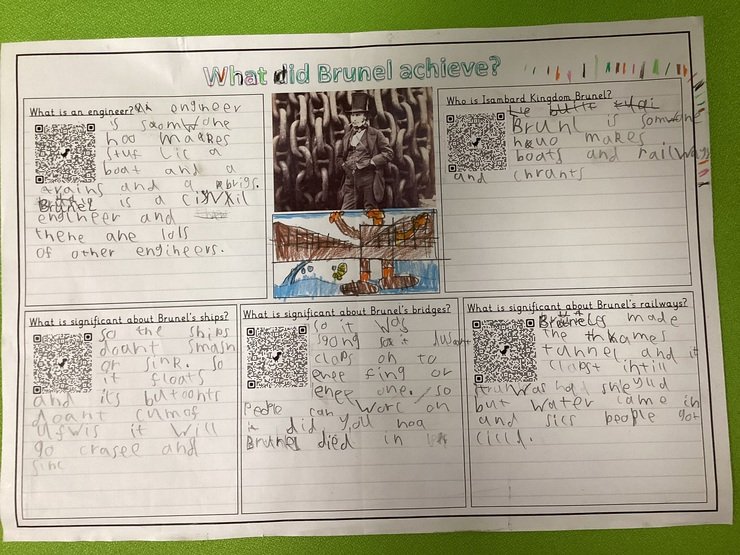 What did Brunel achieve?
What is an engineer? engineer
is somwone
hoo makes
stuf lic a
boat and a
trains and a brigs.
Brunel is a civil
engineer and
there are lots
of other engineers.
Who is Isambard Kingdom Brunel?
He built
Brunl is somwone
huo makes
boats and railways
and
What is significant about Brunel's ships?
so the ships
doant smash
or sink. so
it floats
and its
doant
it will
go crasee and
sinc
What is significant about Brunel's bridges?
so it was
song it dusnt
claps on to
enee fing or
enee one. so
people can worc on
it did you noa
Brunel died in
What is significant about Brunel's railways?
made
The thames
tunnel and it
clapst
but water came in
and sics people got
cilld.